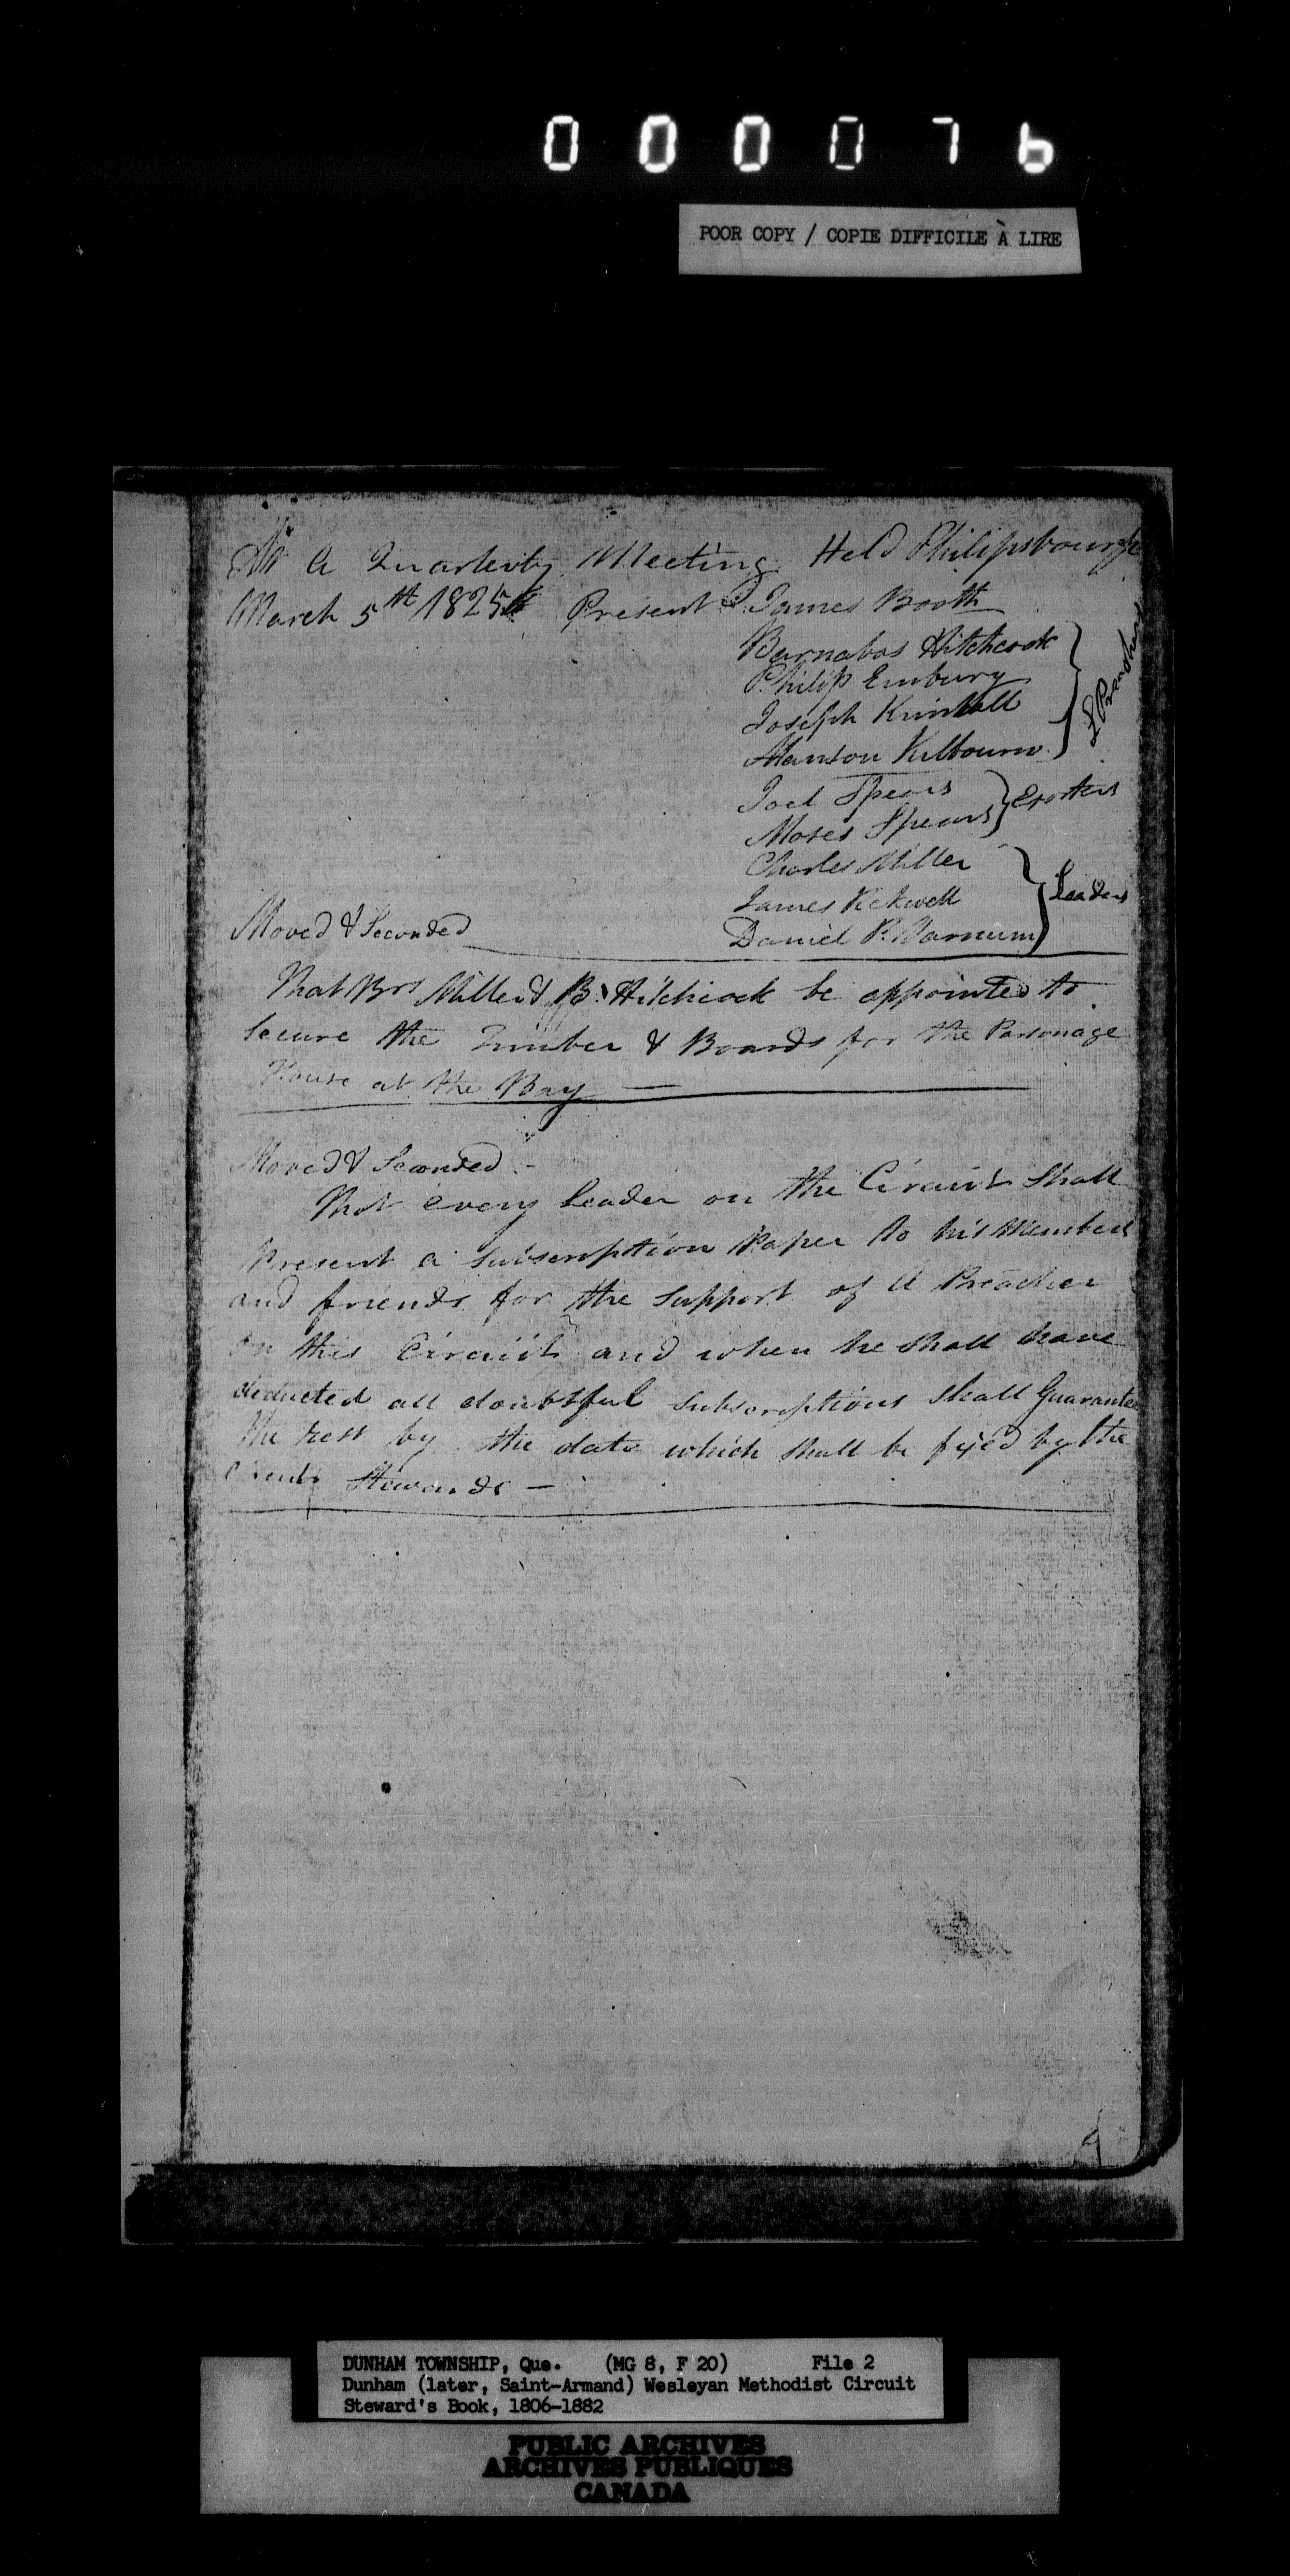 000076
POOR COPY / COPIE DIFFICILE À LIRE
At a Quarterly Meeting Held Philipsbourgh
March 5th 1825 Present James Booth
Barnabas Hitchcock
Philip Embury
Joseph Kimball
Manson Kilbourn
L Preachers
Joel Spears
Moses Spears
Exorters
Charles Miller
James Rckwell
Leaders
Moved & Seconded
Daniel P. Varnum
That Brs Miller & B. Hitchcock be appointed to
Secure the Timber & Boards for the Parsonage
House at the Bay
Moved & Seconded -
That every leader on the Circuit Shall
Present a Subscription Paper to his Members
and friends for the Support of A Preacher
on this Circuit and when he shall have
deducted all doubtful Subscriptions shall Guarantee
the rest by the date which shall be fixed by the
Stewards —
DUNHAM TOWNSHIP, Que. (MG 8, F 20) File 2
Dunham (later, Saint-Armand) Wesleyan Methodist Circuit
Steward's Book, 1806-1882
PUBLIC ARCHIVES
ARCHIVES PUBLIQUES
CANADA